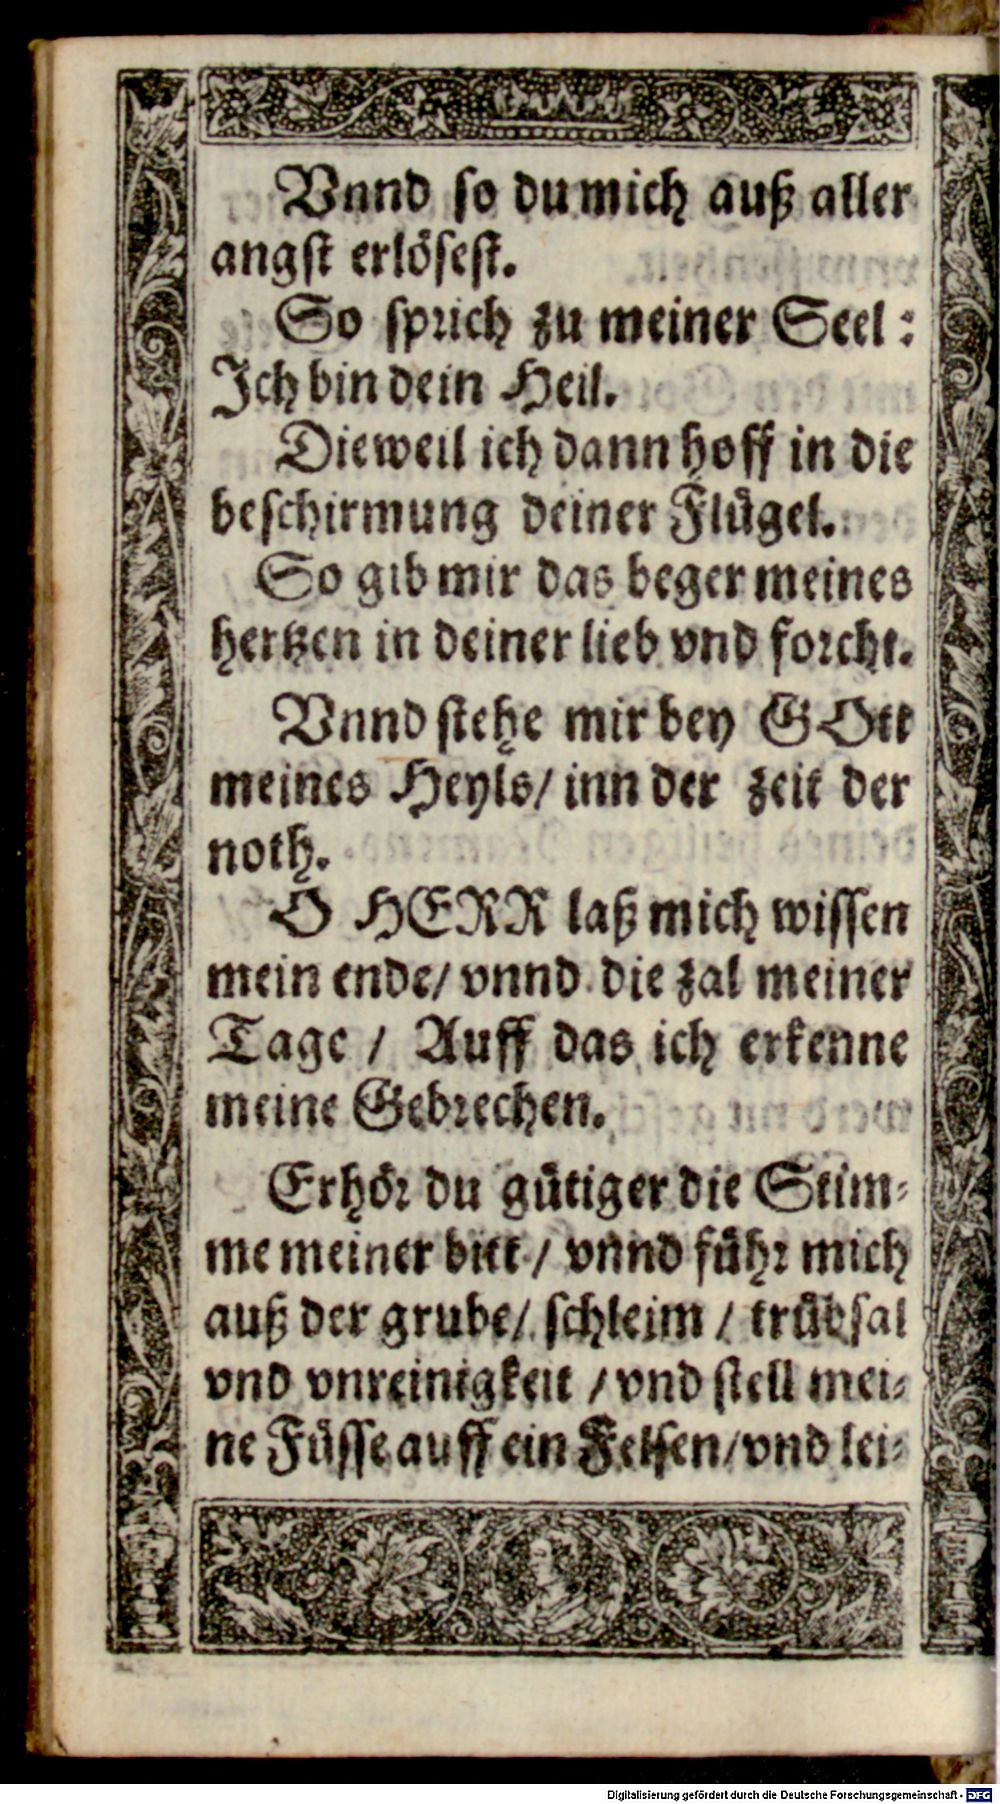 Vnnd so du mich auß aller
angst erlösest.
So sprich zu meiner Seel:
Ich bin dein Heil.
Dieweil ich dann hoff in die
beschirmung deiner Flügel.
So gib mir das beger meines
hertzen in deiner lieb vnd forcht.
Vnnd stehe mir bey GOtt
meines Heyls/ inn der zeit der
noth.
O HERR laß mich wissen
mein ende/ vnnd die zal meiner
Tage / Auff das ich erkenne
meine Gebrechen.
Erhör du gütiger die Stim-
me meiner bitt / vnnd führ mich
auß der grube/ schleim / trübsal
vnd vnreinigkeit / vnd stell mei-
ne Füsse auff ein Felsen/ vnd lei-
Digitalisierung gefördert durch die Deutsche Forschungsgemeinschaft - DFG